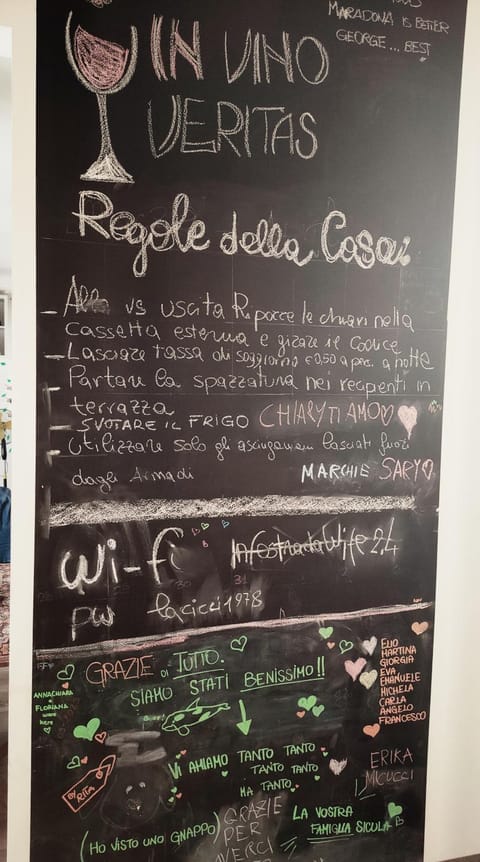 MARADONA IS BETTER
GEORGE... BEST
IN VINO
VERITAS
Regole della Casa:
- Alla vs uscita Riporre le chiavi nella
cassetta esterna e girare il Codice
- Lasciare tassa di soggiorno € 0,50 a pers. a notte
- Portare la spazzatura nei recipienti in
terrazza
- SVUOTARE IL FRIGO CHIARY TI AMO
- Utilizzare solo gli asciugamani lasciati fuori
dagli Armadi
MARCHIE SARY
Wi-fi InfostradaWife 2,4
31
pw lacicci1978
GRAZIE DI TUTTO.
SIAMO STATI BENISSIMO!!
ANNACHIARA
e
FLORIANA
WERE
HERE
ELIO
MARTINA
GIORGIA
EVA
EMANUELE
MICHELA
CARLA
ANGELO
FRANCESCO
VI AMIAMO TANTO TANTO
TANTO TANTO
MA TANTO
RITA
ERIKA
MICUCCI
(HO VISTO UNO GNAPPO)
GRAZIE
PER
AVERCI
LA VOSTRA
FAMIGLIA SICULA